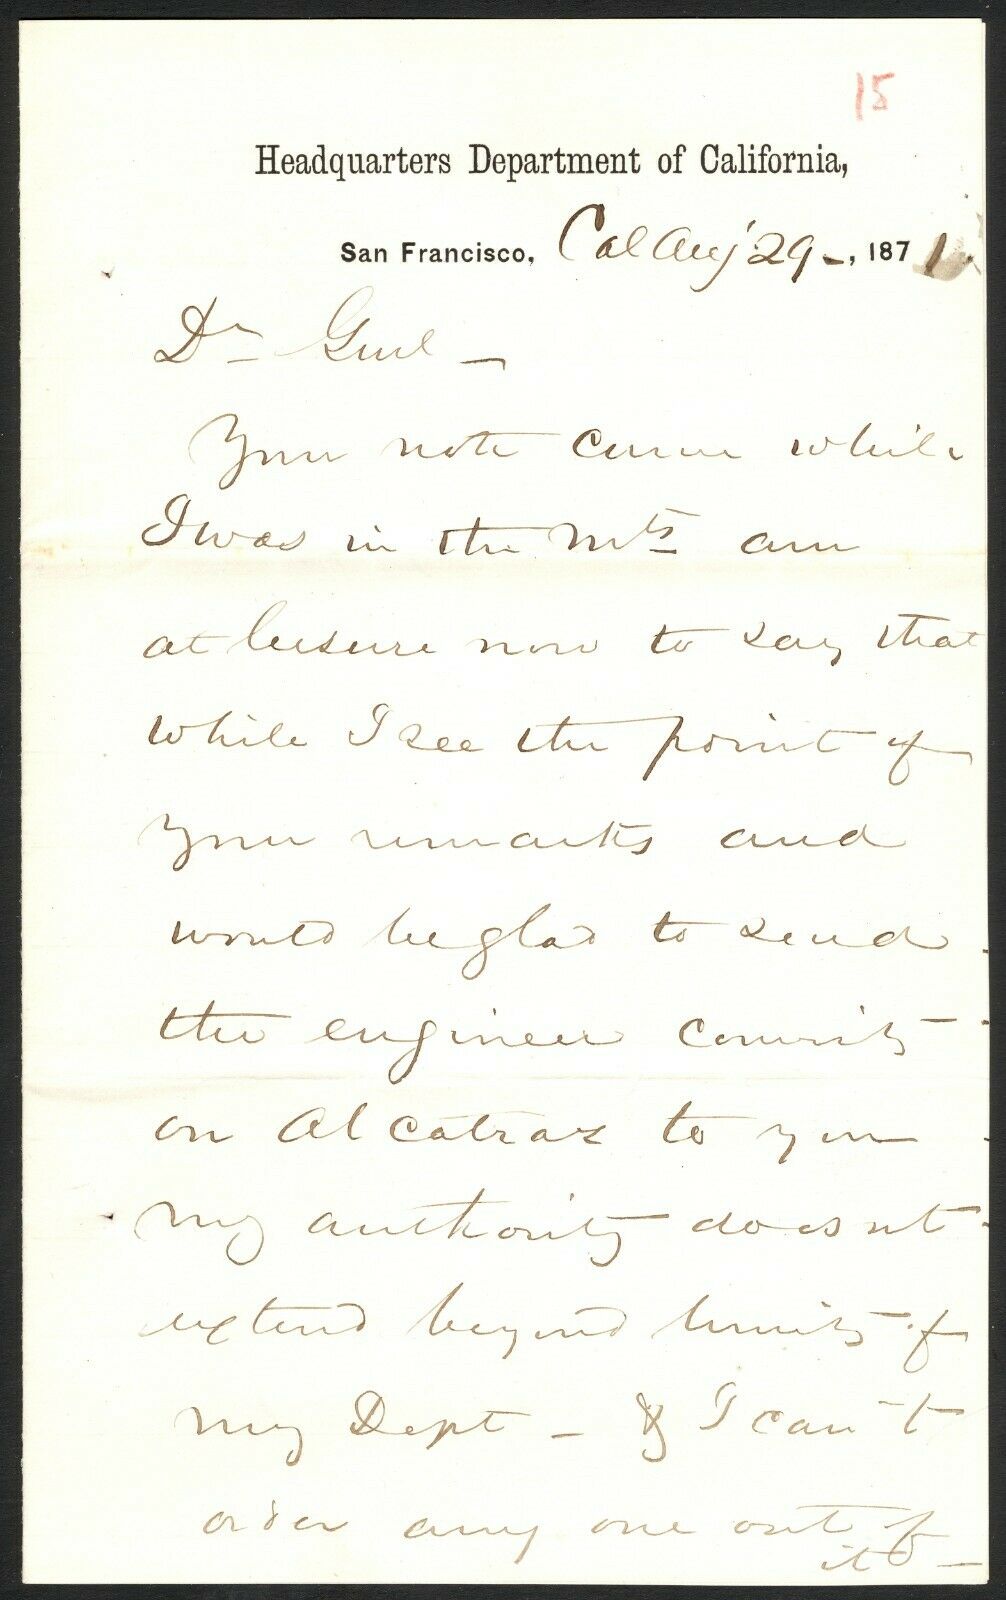 15
Headquarters Department of California,
San Francisco, Cal Aug 29 -, 1871.
Dr Genl —
Your note came while
I was in the Mts am
at leisure now to say that
while I see the point of
your remarks and
would be glad to send
the engineer
on Alcatraz to you
my authority does nt
extend beyond limits of
my Dept - & I can't
order any one out of
it —